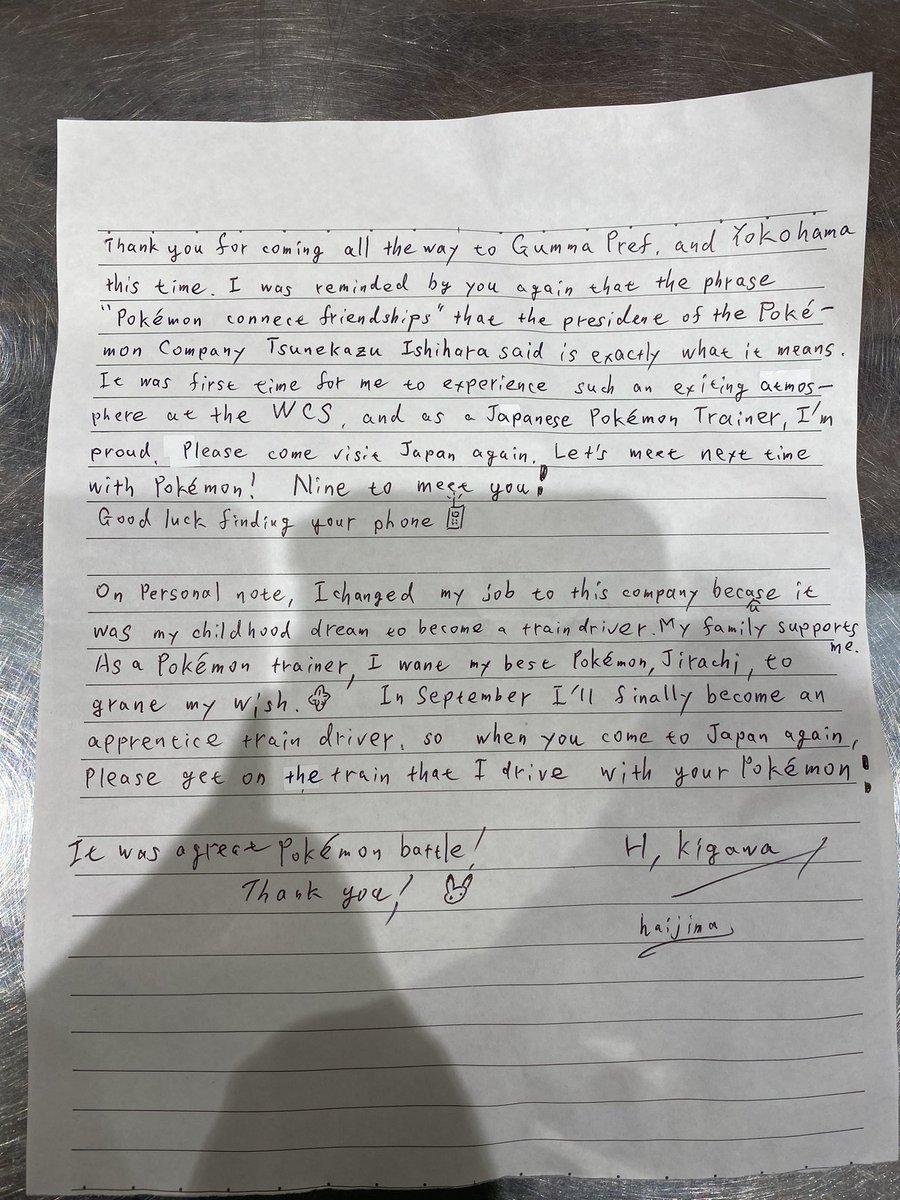 Thank you for coming all the way to Gumma Pref. and Yokohama
this time. I was reminded by you again that the phrase
"Pokémon connect friendships" that the president of the Poké-
mon Company Tsunekazu Ishihara said is exactly what it means.
It was first time for me to experience such an exiting atmos-
phere at the WCS, and as a Japanese Pokémon Trainer, I'm
proud. Please come visit Japan again. Let's meet next time
with Pokémon! Nine to meet you!
Good luck finding your phone
On Personal note, I changed my job to this company becase it
was my childhood dream to become a train driver. My family supports
me.
As a Pokémon trainer, I want my best Pokémon, Jirachi, to
grant my wish. In September I'll finally become an
apprentice train driver. so when you come to Japan again,
Please get on the train that I drive with your Pokémon!
It was a great Pokémon battle!
Thank you!
H, kigawa
haijima